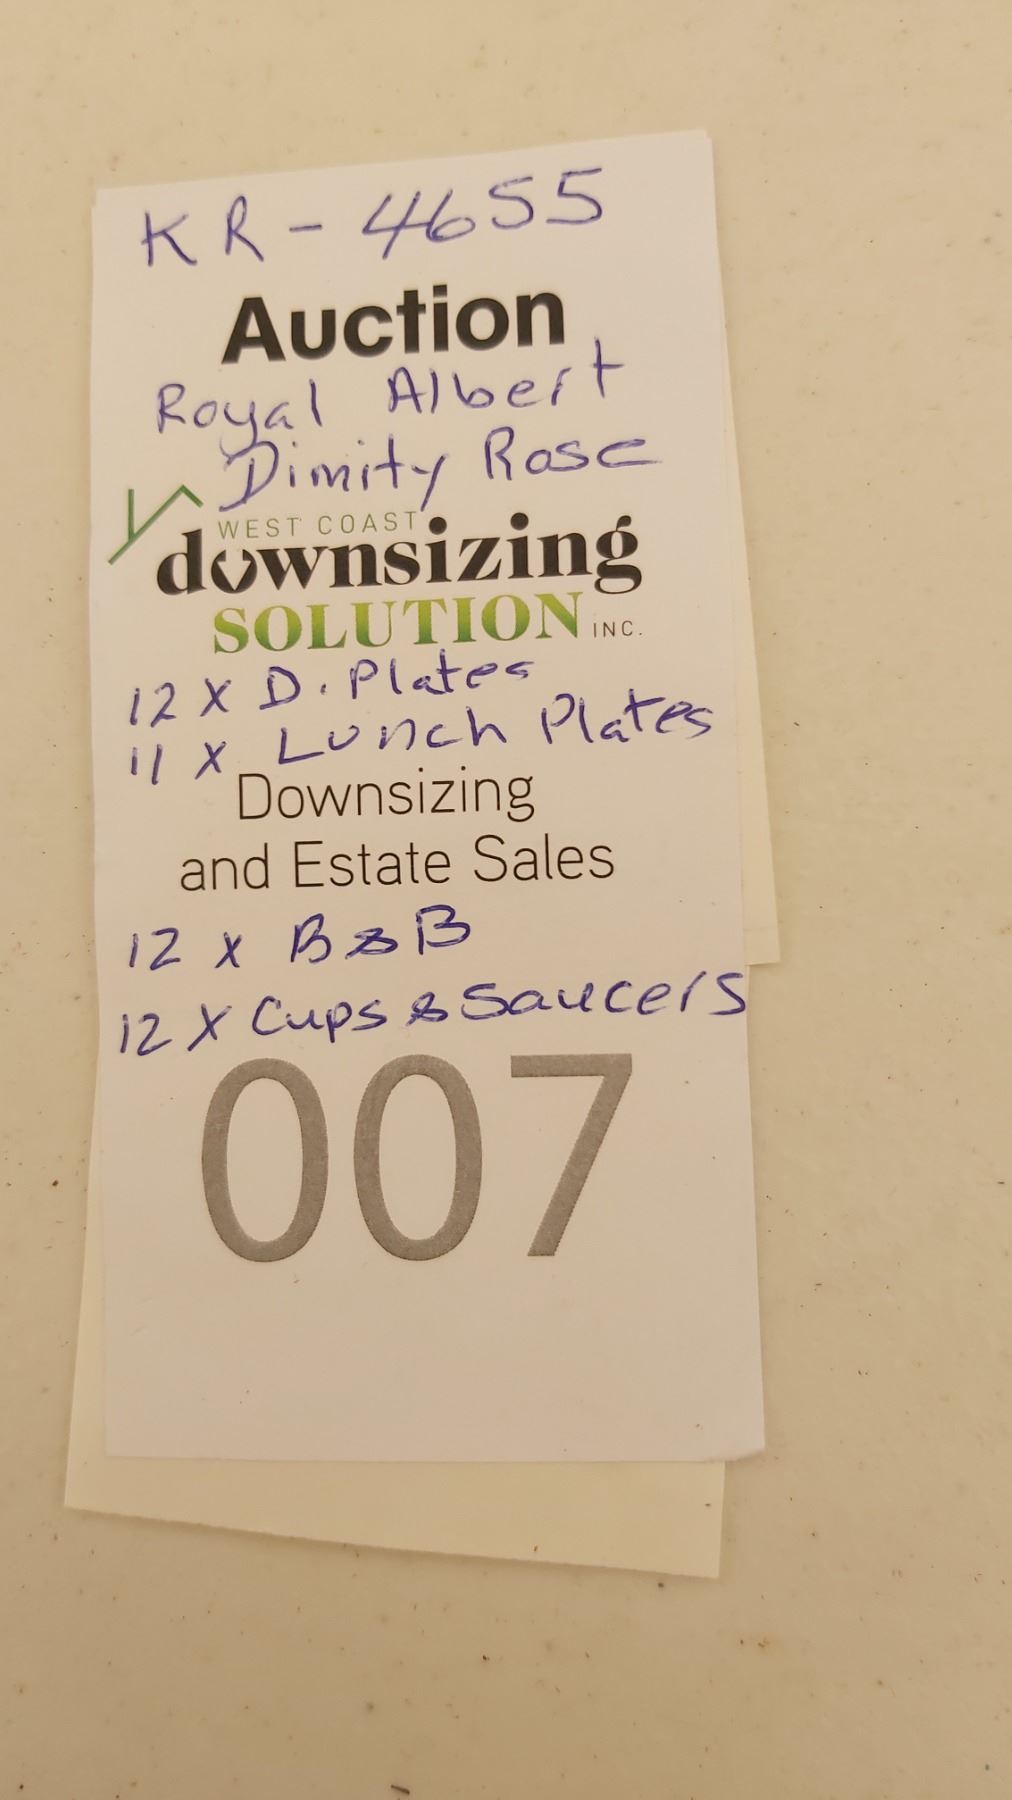 KR-4655
Auction
Royal Albert
Dimity Rose
WEST COAST
downsizing
SOLUTION INC.
12 X D. Plates
11 X Lunch Plates
Downsizing
and Estate Sales
12 X B & B
12 X Cups & Saucers
007